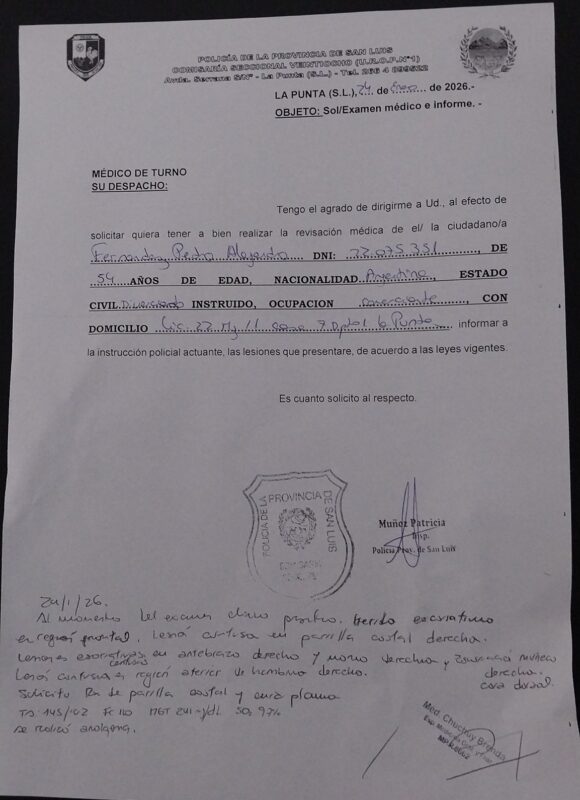 POLICÍA DE LA PROVINCIA DE SAN LUIS
COMISARÍA SECCIONAL VEINTIOCHO (U.R.O.P.Nº1)
Avda. Serrana S/Nº - La Punta (S.L.) - Tel. 266 4 099522
LA PUNTA (S.L.), 24 de Enero de 2026.-
OBJETO: Sol/Examen médico e informe. -
MÉDICO DE TURNO
SU DESPACHO:
Tengo el agrado de dirigirme a Ud., al efecto de
solicitar quiera tener a bien realizar la revisación médica de el/ la ciudadano/a
Fernandez Pedro Alejandro DNI: 22.075.351, DE
54 AÑOS DE EDAD, NACIONALIDAD Argentino, ESTADO
CIVIL Divorciado INSTRUIDO, OCUPACION comerciante, CON
DOMICILIO 22 Mz 11 casa 7 la Punta informar a
la instrucción policial actuante, las lesiones que presentare, de acuerdo a las leyes vigentes.
Es cuanto solicito al respecto.
POLICÍA DE LA PROVINCIA DE SAN LUIS
Muñoz Patricia
Insp.
Policía Prov. de San Luis
24/1/26.
Al momento del examen clinico positivo. herida excoriativa
en región frontal. Lesión contusa en parrilla costal derecha.
Lesiones excoriativas en antebrazo derecho y mano derecha y muñeca
derecha.
Lesión contusa en región anterior de hombro derecho. cara dorsal.
Solicito Rx de parrilla costal y
TA: 145/102 Fc 110 HGT 241 mg/dL SO2 97%
Se realizó analgesia.
Med. Chuchuy Brenda